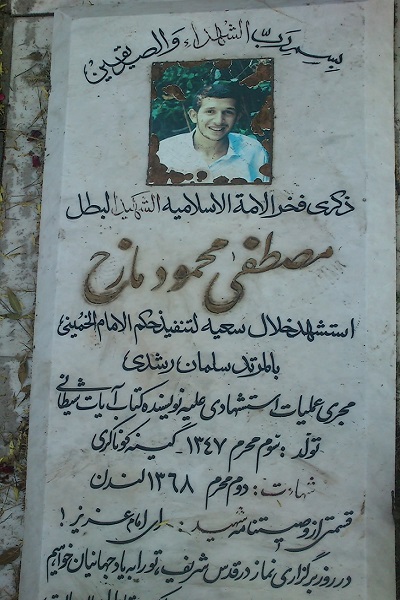 بسم ربّ الشهداء والصدیقین
ذکری فخر الامة الاسلامیه الشهید البطل
مصطفی محمود مازح
استشهد خلال سعیه لتنفیذ حکم الامام الخمینی
بالمرتد سلمان رشدی
مجری عملیات استشهادی علیه نویسنده کتاب آیات شیطانی
تولد : سوم محرم ۱۳۴۷ - گینه کوناکری
شهادت : دوم محرم ۱۳۶۸ لندن
قسمتی از وصیتنامه شهید : ای امام عزیز !
در روز برگزاری نماز در قدس شریف، تو را به یاد جهانیان خواهیم